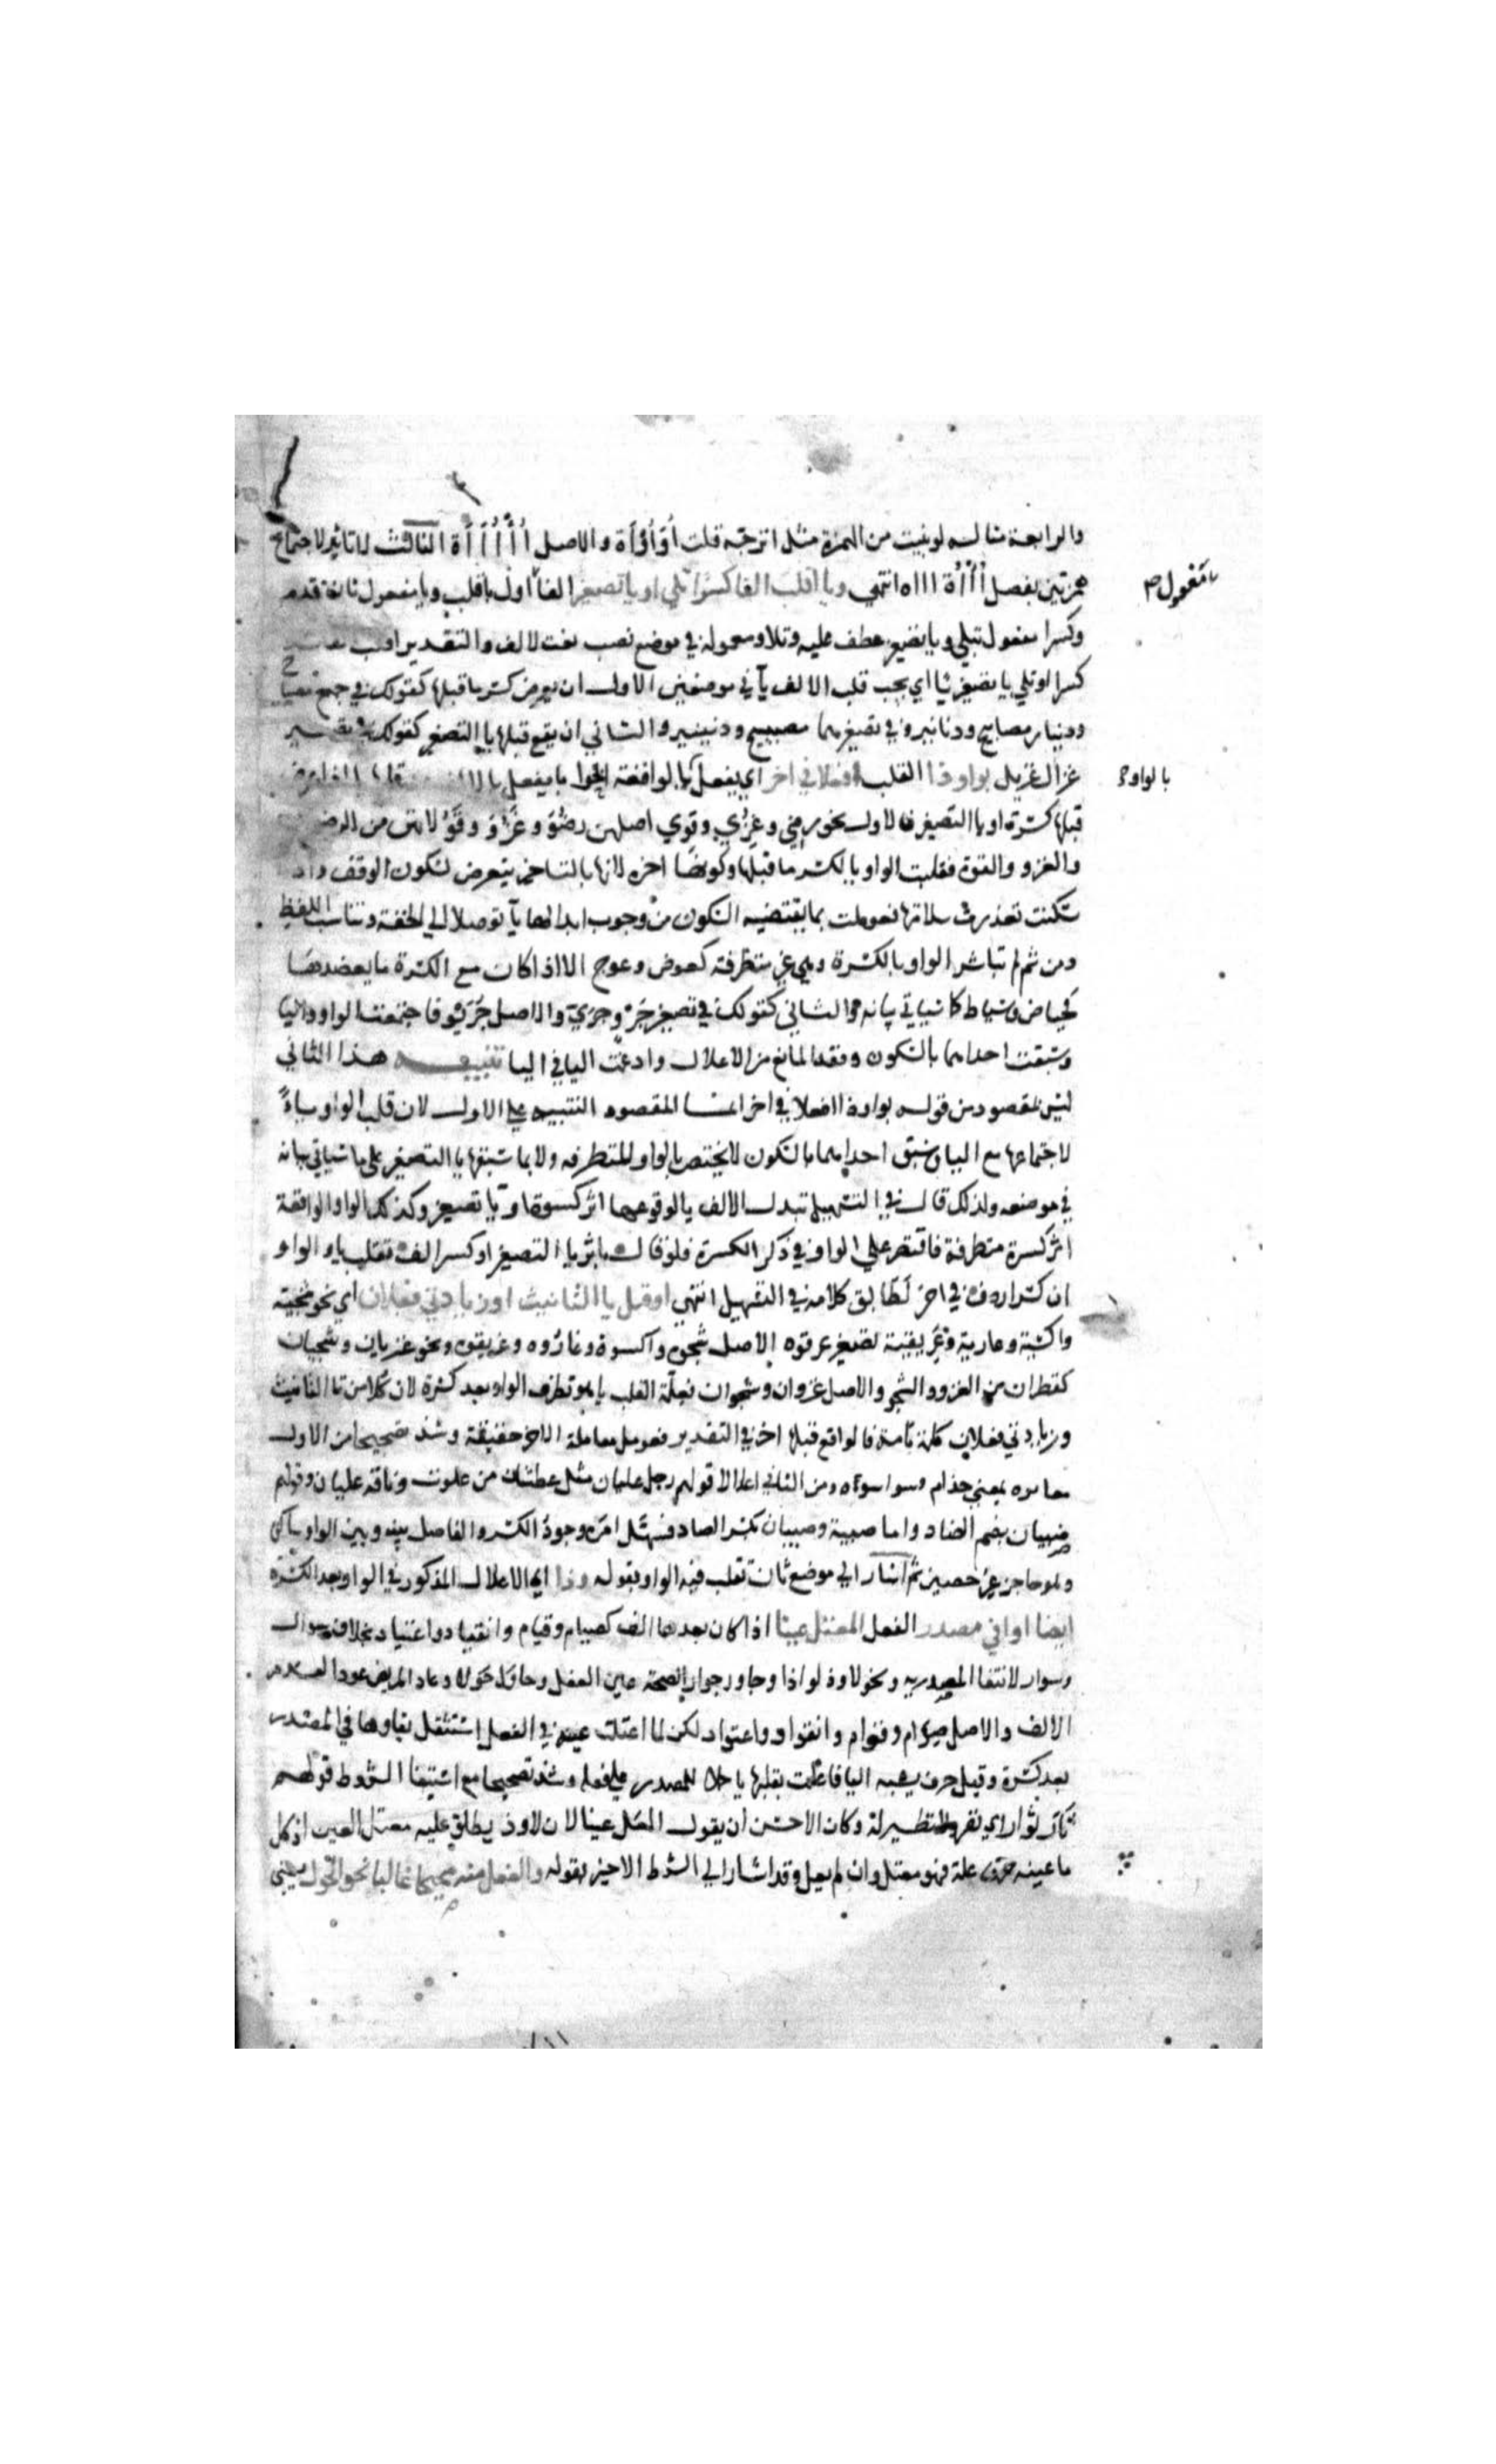 والرابعة مثاله لو بنيت من الهمزة مثل اترجة قلت أُوْأُوْأَة والاصل أُأْأُأْأَة الثالث لا تاثير لاجتماع
همزتين بفصل أُأْأُة ااه انتهي ويا اقلب الفا كسرا تلي او يا تصغير الفا اول باقلب ويا مفعول ثان قدم
مفعول صح
وكسرا مفعول تبلي ويا تصغير عطف عليه وتلا ومعموله في موضع نصب نعت لالف والتقدير اقلب
كسرا او تلي يا تصغير يا اي يجب قلب الالف يآ في موضعين الاول ان يعرض كسر ما قبلها كقولك في جمع مصباح
ودينار مصابيح ودنانير وفي تصغيرهما مصيبيح ودنينير والثاني ان يقع قبلها يا التصغير كقولك في تصغير
غزال غزيل بواو ذا القلب افعلا في اخر اي يفعل بالواو الواقعة اخرا ما يفعل بالالف
بالواو
قبلها كسرة او يا التصغير فالاول نحو رضي وغزي وقوي اصلهن رضو وغزو وقوو لانهن من الرضوان
والغزو والقوة فقلبت الواو يا لكسر ما قبلها وكونها اخرا لانها بالتاخر يتعرض لسكون الوقف واذا
سكنت تعذرت سلامتها فعوملت بما يقتضيه السكون من وجوب ابدالها يآ توصلا الي الخفة وتناسب اللفظ
ومن ثم لم تباشر الواو بالكسرة وهي غير متطرفة كعوض وعوج الا اذا كان مع الكسرة ما يعضدها
كحياض وسياط كما سياتي بيانه والثاني كقولك في تصغير جرو جري والاصل جريو فاجتمعت الواو واليا
وسبقت احداهما بالسكون وفقد المانع من الاعلال وادغمت اليا في اليا تنبيه هذا الثاني
ليس بمقصود من قوله بواو ذا افعلا في اخر انما المقصود التنبيه علي الاول لان قلب الواو ياءً
لاجتماعها مع اليا وسبق احداهما بالسكون لا يختص بالواو المتطرفه ولا بما سبقها يا التصغير علي ما سياتي بيانه
في موضعه ولذلك قال في التسهيل تبدل الالف يا لوقوعها اثر كسرة او يا تصغير وكذلك الواو الواقعة
اثر كسرة متطرفة فاقتصر علي الواو في ذكر الكسرة فلو قال باثر يا التصغير او كسر الف تقلب يا والواو
ان كسرا ردف في اخر لطابق كلامه في التسهيل انتهي او قبل يا التانيث او زيادتي فعلان اي نحو شجية
واكسية وغازية وعريقية تصغير عرقوه الاصل شجوة واكسوة وغازوه وعريقوه ونحو غزيان وشجيان
كقطران من الغزو والشجو والاصل غزوان وشجوان فعلة القلب يا هو تطرف الواو بعد كسرة لان كلا من تا التانيث
وزيادتي فعلان كلمة تامة فالواقع قبلها اخر في التقدير فعومل معاملة الاخر حقيقة وشذ تصحيحا من الاول
مقاتوه بمعني خدام وسواسوة ومن الثاني اعلالا قولهم رجل عليان مثل عطشان من علوت وناقة عليان وقولهم
ضبيان بضم الضاد واما صبية وصبيان بكسر الصاد فسهل امره وجود الكسر والفاصل بينه وبين الواو ساكن
وهو حاجز غير حصين ثم اشار الي موضع ثان تقلب فيه الواو بقوله وذا اي الاعلال المذكور في الواو بعد الكسرة
ايضا اوا في مصدر الفعل المعتل عينا اذا كان بعدها الف كصيام وقيام وانقياد واعتياد بخلاف سواك
وسوار لانتفا المصدريه ونحو لاوذ لواذا وجاور جوارا لصحة عين الفعل وحاول حولا وعاد المريض عودا لعدم
الالف والاصل صوام وقوام وانقواد واعتواد لكن لما اعتلت عينه في الفعل استثقل بقاوها في المصدر
بعد كسرة وقبل حرف يشبه اليا فاعلت بقلبها يا حملا للمصدر علي فعله وشذ تصحيحا مع استيفا الشروط قولهم
نار نوارا اي نفر ولا نظير له وكان الاحسن ان يقول المعل عينا لان لاوذ يطلق عليه معتل العين اذ كل
ما عينه حرف علة فهو معتل وان لم يعل وقد اشار الي الشرط الاخير بقوله والفعل منه صحيح غالبا نحو الحول يعني